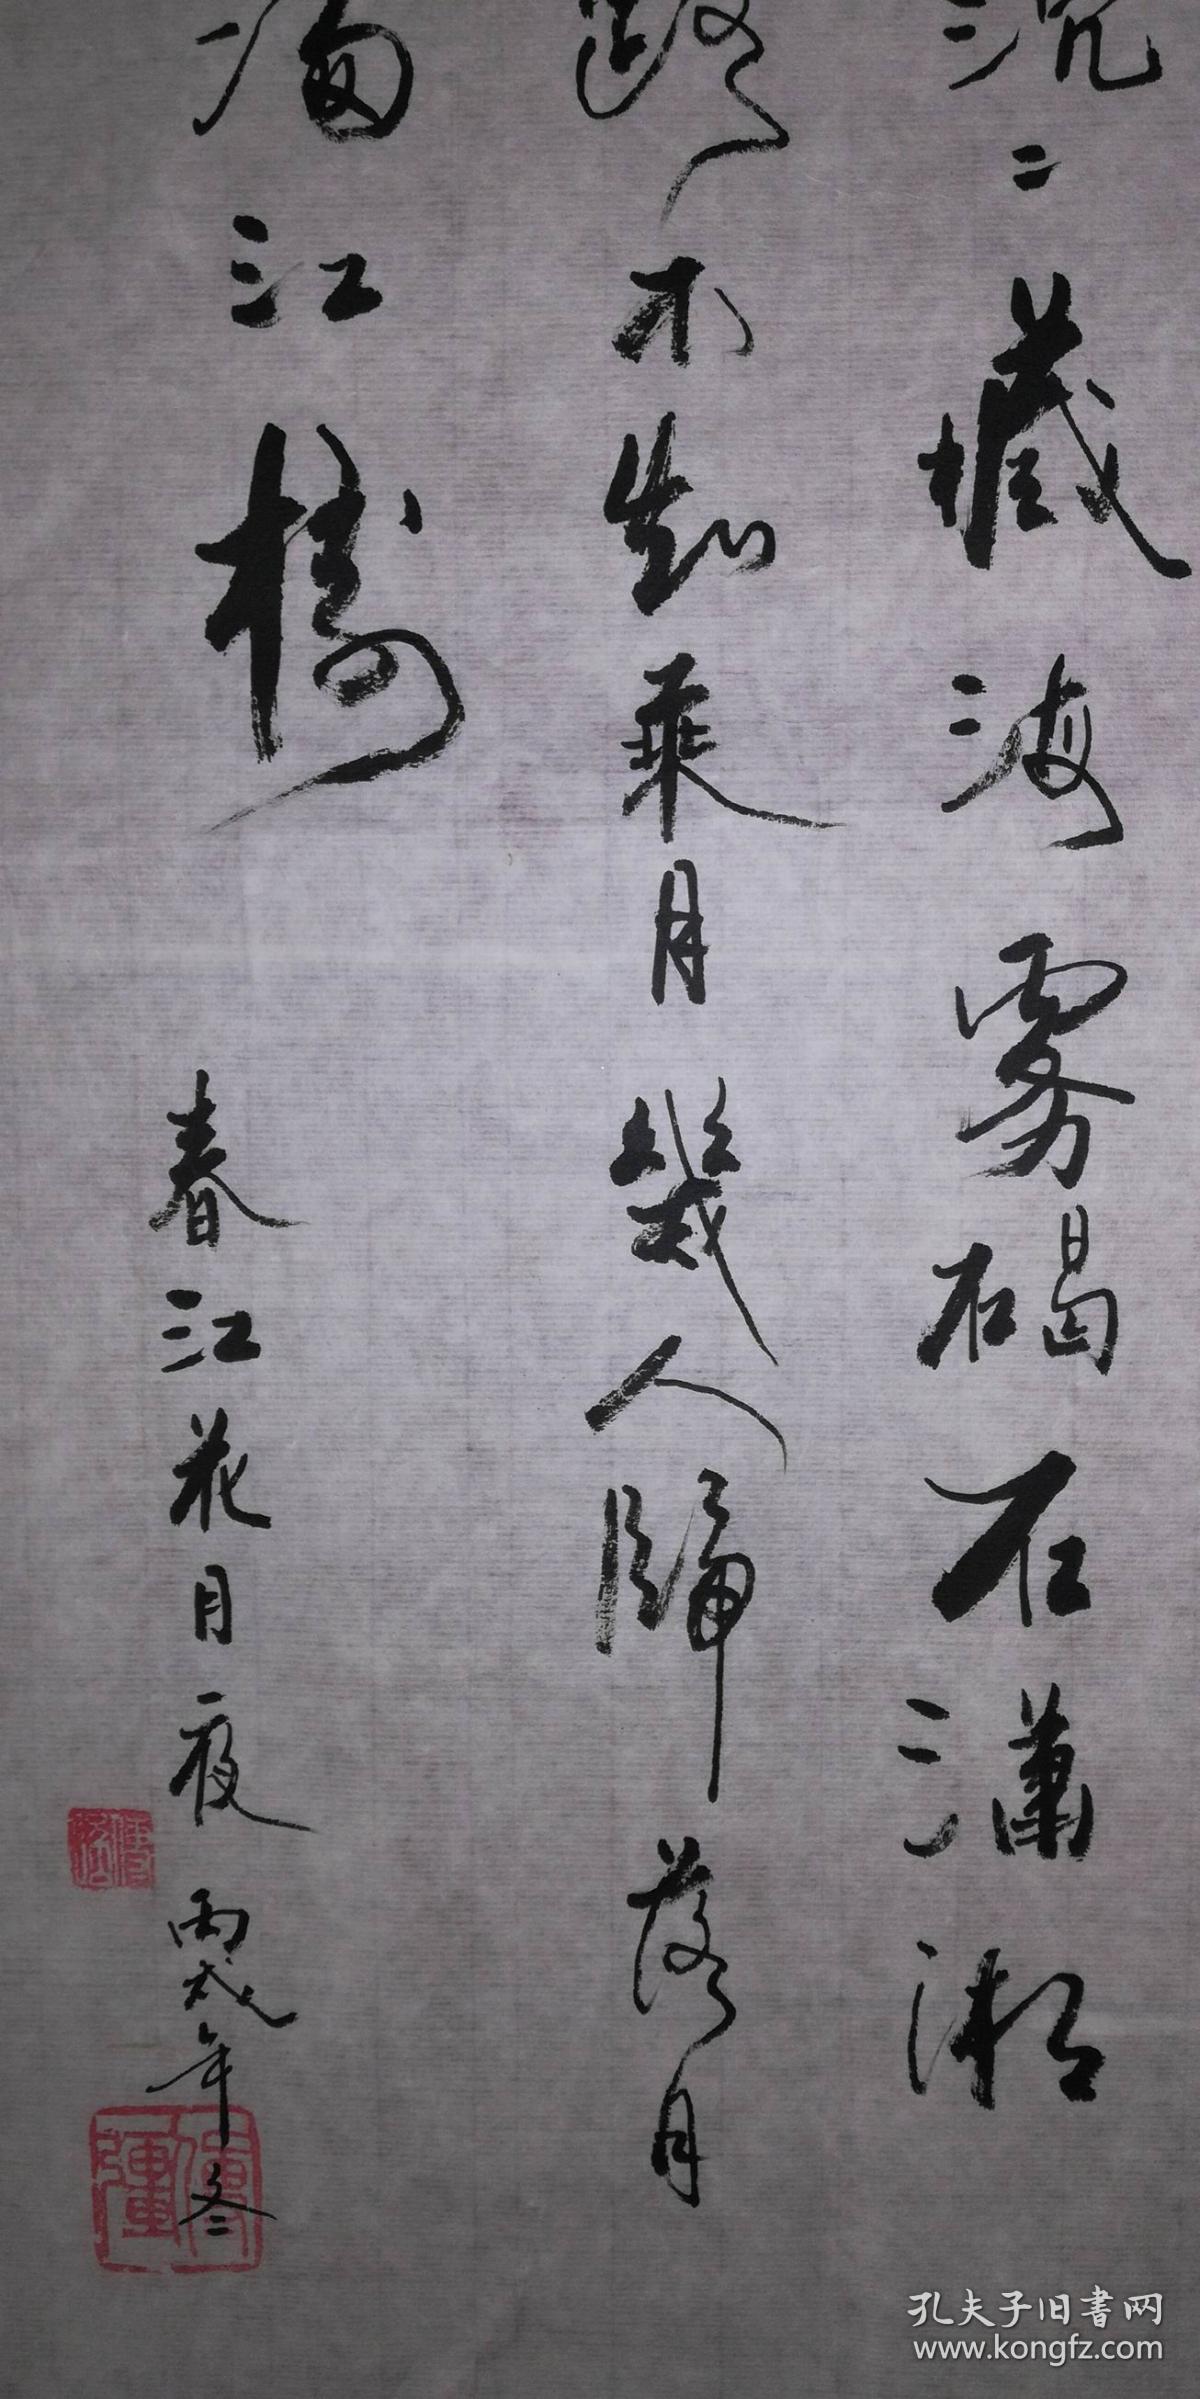 沉〻藏海雾碣石潇湘
路不知乘月几人归落月
满江树
春江花月夜
丙戌年冬
孔夫子旧书网
www.kongfz.com